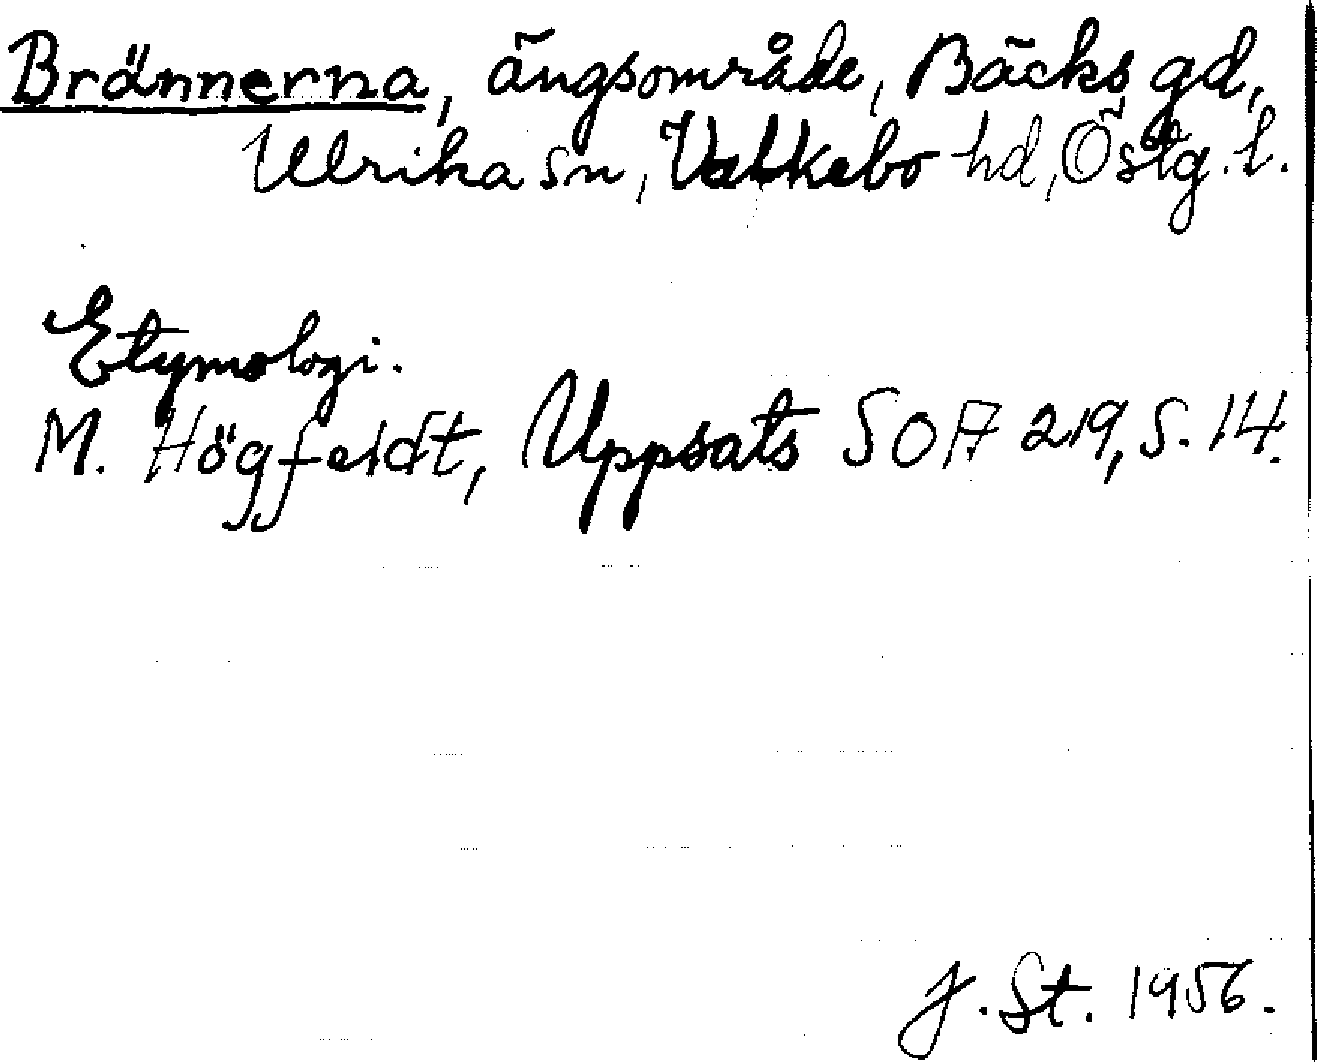 Brännerna, ängsområde, Bäcks gd,
Ulrika sn, Valkebo hd, Östg. l.
Etymologi.
M. Högfeldt, Uppsats SOA 219, s. 14.
J. St. 1956.